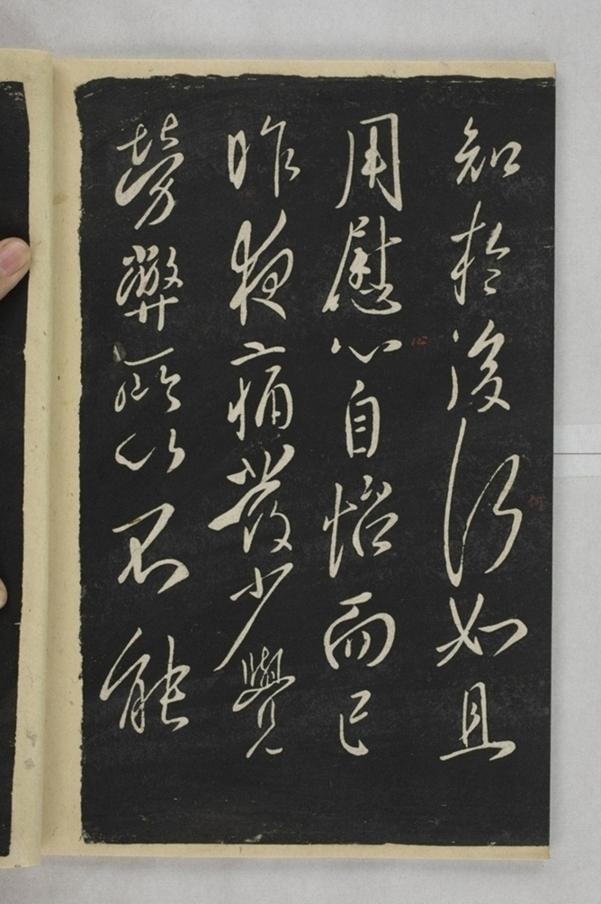 知於後何如且
用慰心自怡而已
昨夜痛發少覺
勞弊所以不能